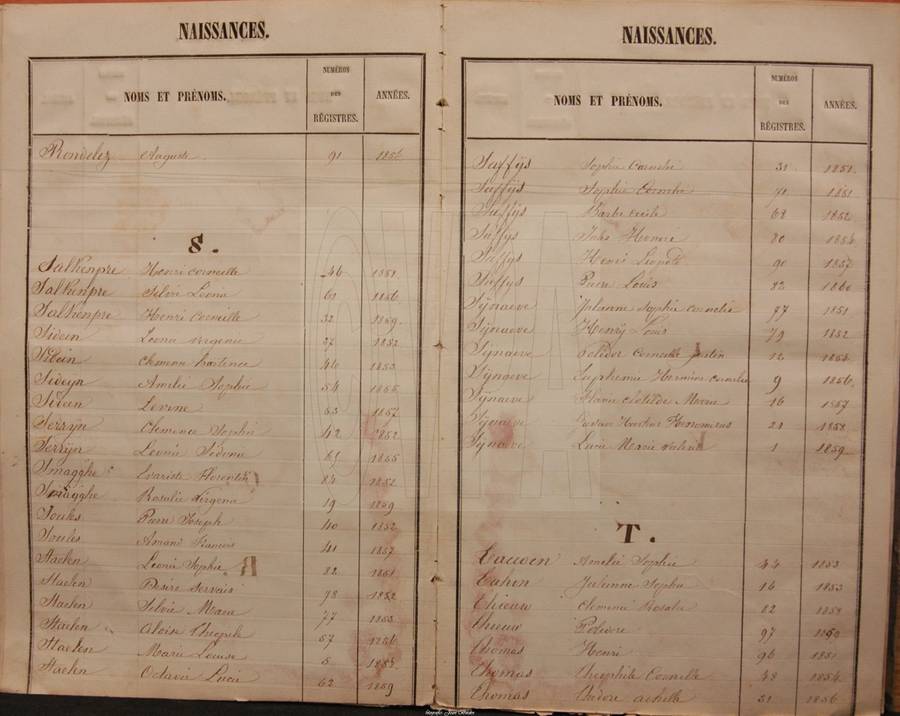 NAISSANCES.
NOMS ET PRÉNOMS. NUMÉROS DES RÉGISTRES. ANNÉES.
Rondelez Auguste 91 1856
S.
Salhenpre Henri corneille 46 1851
Salhenpre Silvie Leonie 61 1856
Salhenpre Henri Corneille 32 1859
Sidein Leonie virginie 37 1852
Clemence hortence 40 1853
Sideyn Amelie Sophie 54 1855
Levine 63 1857
Serryn Clemence Sophie 42 1852
Serryn Leonie Sidonie 61 1855
Smagghe Evariste Florentin 84 1852
Smagghe Rosalie Virginie 19 1859
Soules Pierre Joseph 40 1852
Soules Amand Francois 41 1857
Staelen Leonie Sophie 22 1851
Staelen Desiré Servais 98 1852
Staelen Silvie Marie 77 1853
Staelen Aloise Theophile 57 1856
Staelen Marie Louise 5 1858
Staelen Octavie Lucie 62 1859
NAISSANCES.
NOMS ET PRÉNOMS. NUMÉROS DES RÉGISTRES. ANNÉES.
Suffÿs Sophie Cornelie 31 1851
Suffÿs Sophie Cornelie 71 1851
Suffÿs Barbe cecile 68 1852
Suffys Jules Honoré 80 1854
Suffys Henri Leopold 90 1857
Suffys Pierre Louis 82 1860
Sÿnaeve Julienne Sophie cornelie 87 1851
Sÿnaeve Henry Louis 79 1852
Sÿnaeve Polidor Corneille 12 1854
Sÿnaeve Euphemie Hermine cornelie 9 1856
Sÿnaeve Flavie clotilde Marie 16 1857
Sÿnaeve 21 1858
Sÿnaeve Lucie Marie 1 1859
T.
Tauwen Amelie Sophie 44 1853
Tahen Julienne Sophie 16 1853
Thieuw Clemence Rosalie 82 1858
Thieuw 97 1850
Thomas Henri 96 1851
Thomas Theophile Corneille 48 1854
Thomas Isidore achille 31 1856